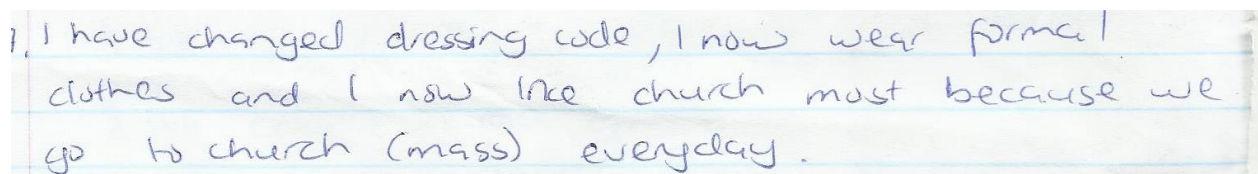 1. I have changed dressing code, I now wear formal
clothes and I now like church most because we
go to church (mass) everyday.